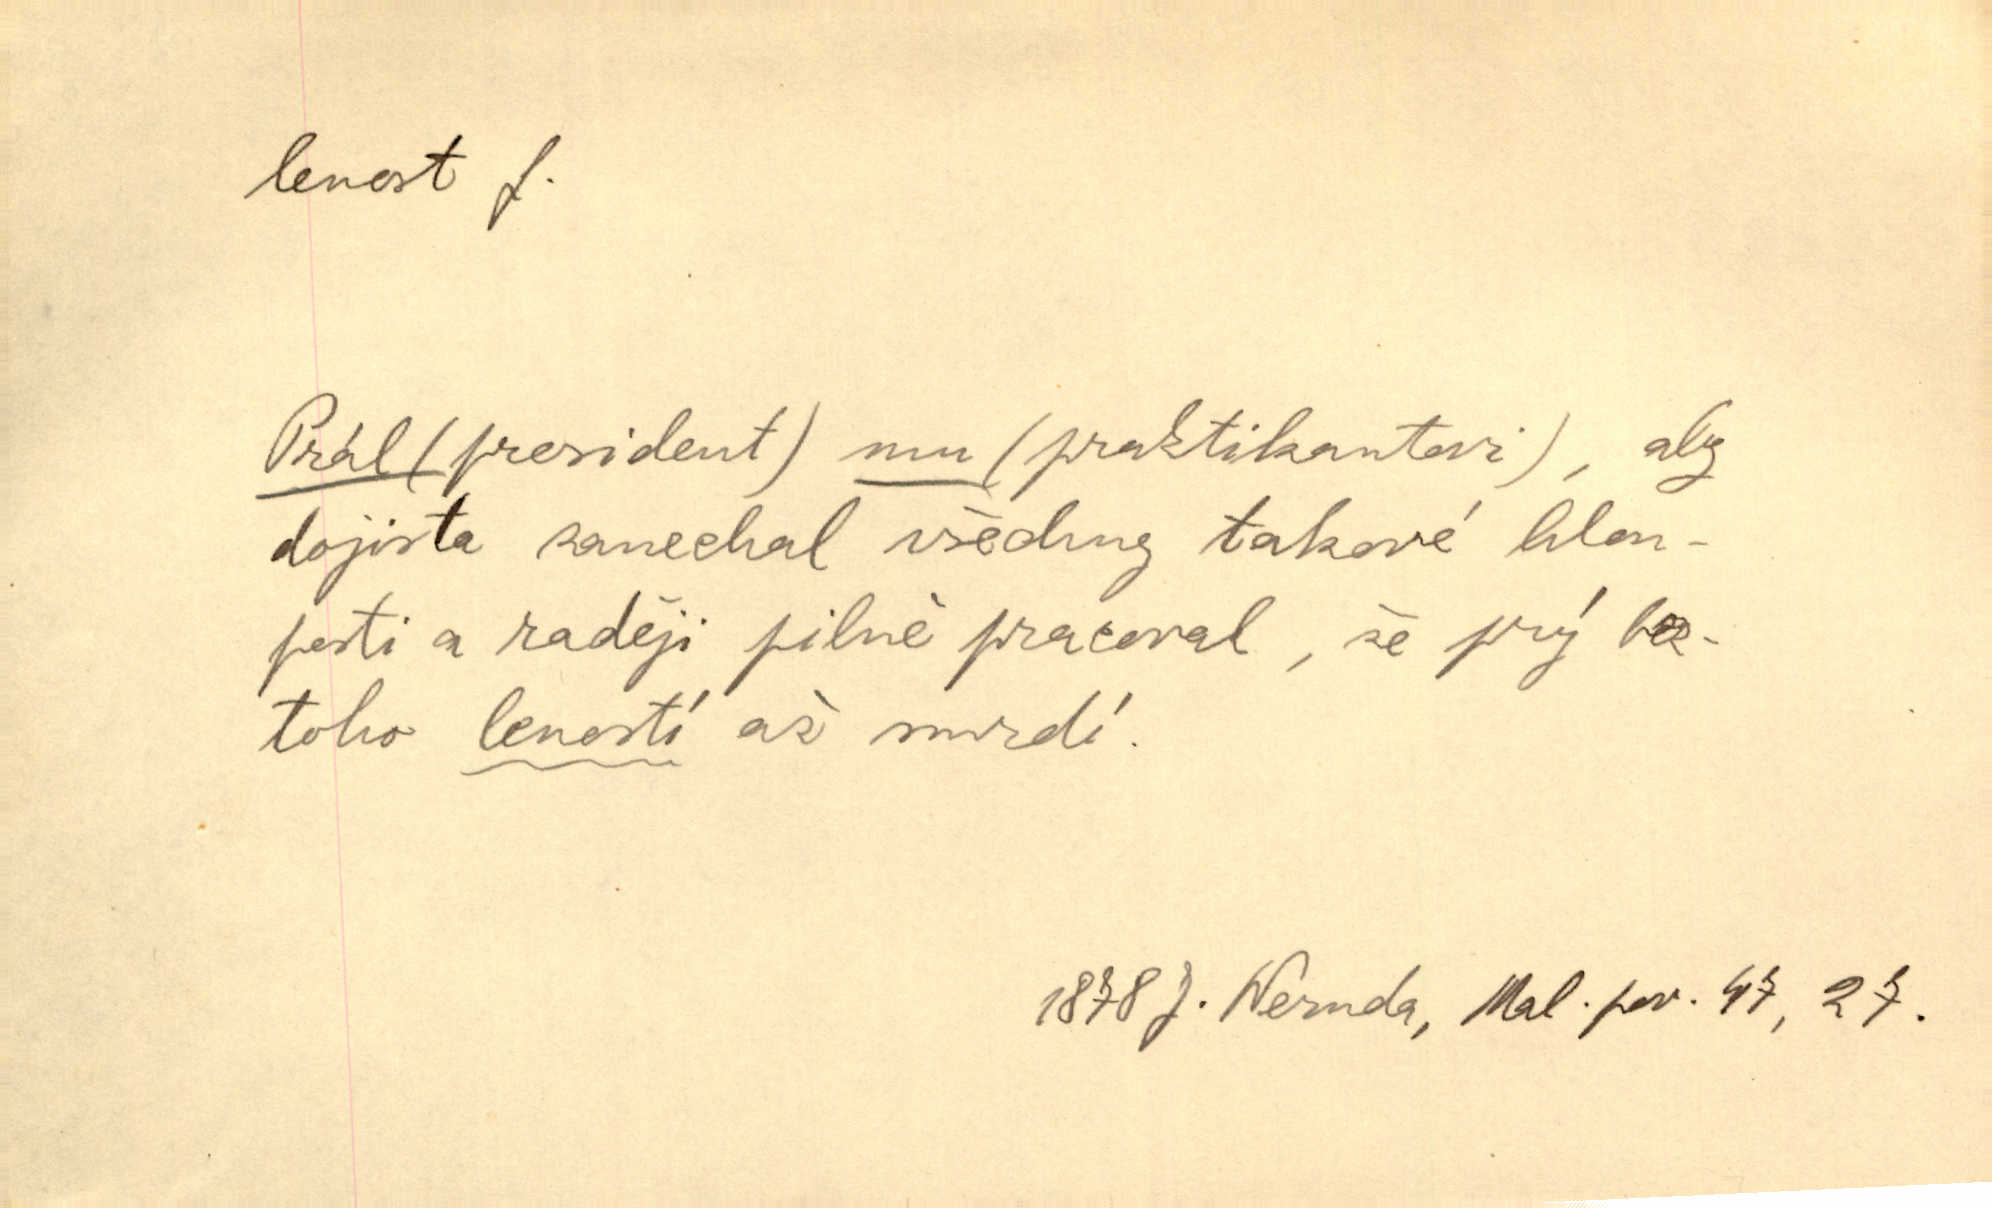 lenost f.
Přál (president) mu (praktikantovi), aby
dojista zanechal všechny takové hlou-
posti a raději pilně pracoval, že prý bez-
toho leností až smrdí.
1878 J. Neruda, Mal. pov. 47, 27.